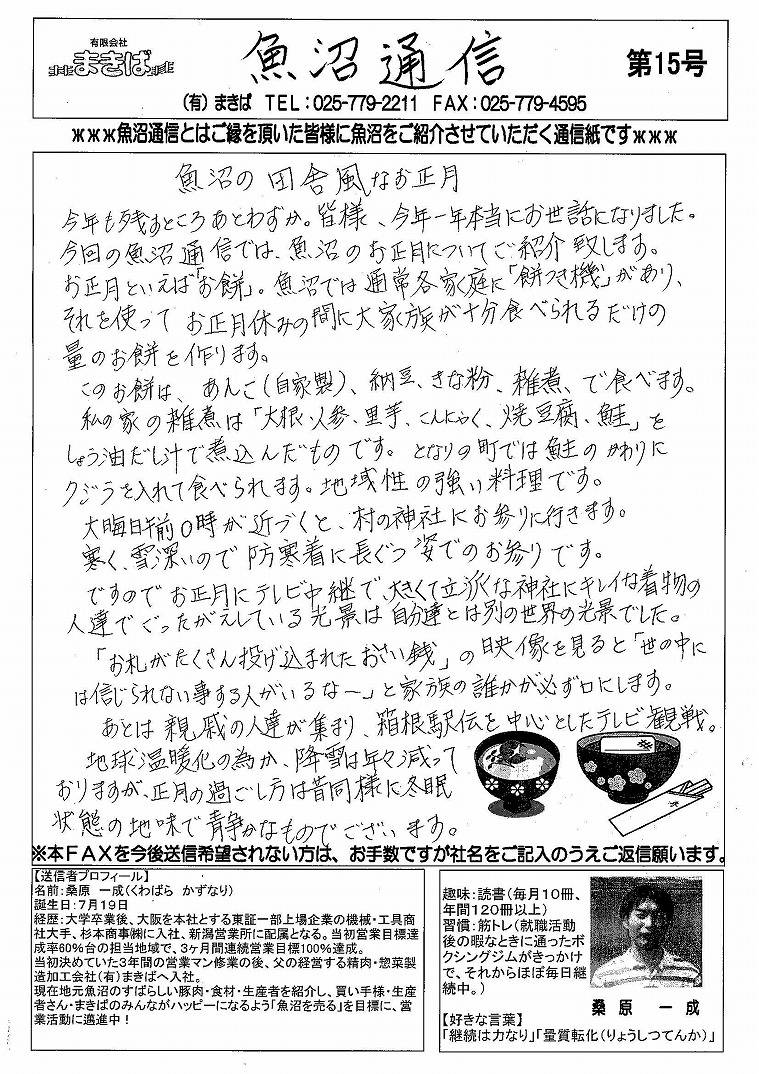 有限会社
まきば
魚沼通信
第15号
(有)まきば TEL:025-779-2211 FAX:025-779-4595
***魚沼通信とはご縁を頂いた皆様に魚沼をご紹介させていただく通信紙です***
魚沼の田舎風なお正月
今年も残すところあとわずか。皆様、今年一年本当にお世話になりました。
今回の魚沼通信では、魚沼のお正月についてご紹介致します。
お正月といえば「お餅」。魚沼では通常各家庭に「餅つき機」があり、
それを使ってお正月休みの間に大家族が十分食べられるだけの
量のお餅を作ります。
このお餅は、あんこ(自家製)、納豆、きな粉、雑煮、で食べます。
私の家の雑煮は「大根、人参、里芋、こんにゃく、焼豆腐、鮭」を
しょう油だし汁で煮込んだものです。となりの町では鮭のかわりに
クジラを入れて食べられます。地域性の強い料理です。
大晦日午前0時が近づくと、村の神社にお参りに行きます。
寒く、雪深いので防寒着に長ぐつ姿でのお参りです。
ですのでお正月にテレビ中継で、大きくて立派な神社にキレイな着物の
人達でごったがえしている光景は自分達とは別の世界の光景でした。
「お札がたくさん投げ込まれたおさい銭」の映像を見ると「世の中に
は信じられない事する人がいるなー」と家族の誰かが必ず口にします。
あとは親戚の人達が集まり、箱根駅伝を中心としたテレビ観戦。
地球温暖化の為か、降雪は年々減って
おりますが、正月の過ごし方は昔同様に冬眠
状態の地味で静かなものでございます。
※本FAXを今後送信希望されない方は、お手数ですが社名をご記入のうえご返信願います。
【送信者プロフィール】
名前:桑原 一成(くわばら かずなり)
誕生日:7月19日
経歴:大学卒業後、大阪を本社とする東証一部上場企業の機械・工具商
社大手、杉本商事㈱に入社、新潟営業所に配属となる。当初営業目標達
成率60%台の担当地域で、3ヶ月間連続営業目標100%達成。
当初決めていた3年間の営業マン修業の後、父の経営する精肉・惣菜製
造加工会社(有)まきばへ入社。
現在地元魚沼のすばらしい豚肉・食材・生産者を紹介し、買い手様・生産
者さん・まきばのみんながハッピーになるよう「魚沼を売る」を目標に、営
業活動に邁進中!
趣味:読書(毎月10冊、
年間120冊以上)
習慣:筋トレ(就職活動
後の暇なときに通ったボ
クシングジムがきっかけ
で、それからほぼ毎日継
続中。)
桑原 一成
【好きな言葉】
「継続は力なり」「量質転化(りょうしつてんか)」